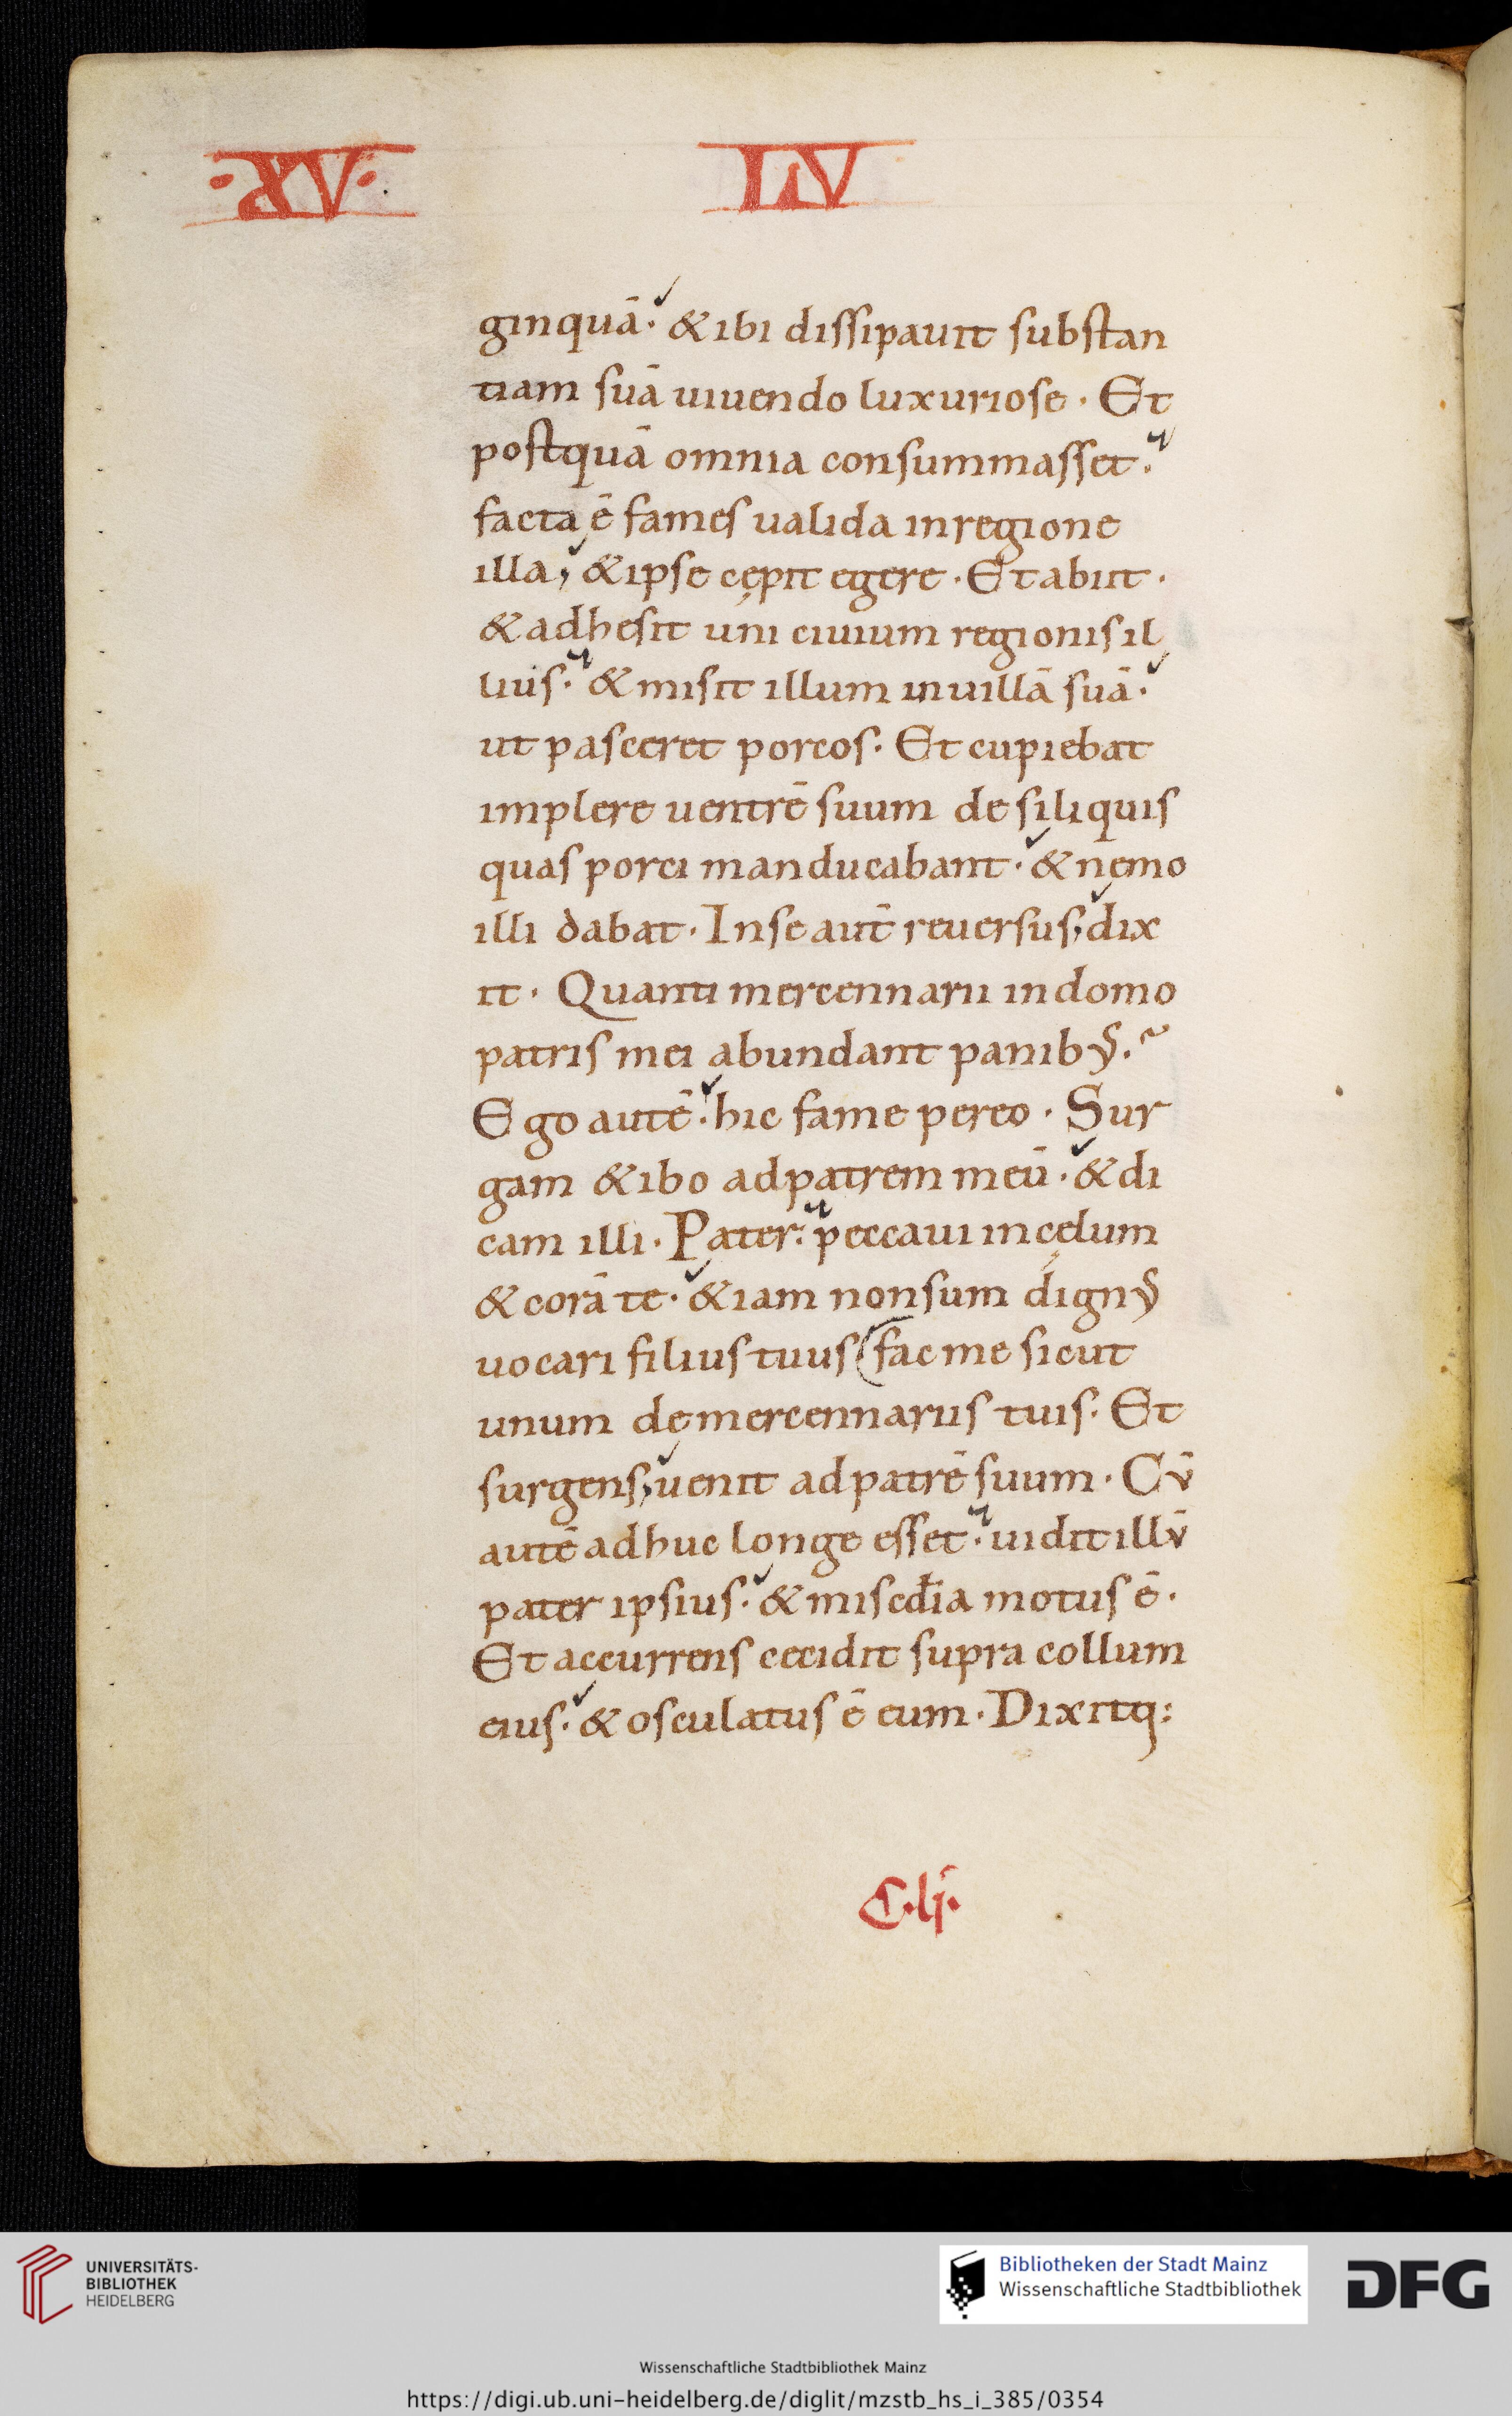 ·XV· LV
ginquā. & ibi dissipauit substan
tiam suā uiuendo luxuriose. Et
postquā omnia consummasset.
facta ē fames ualida in regione
illa, & ipse cępit egere. Et abiit.
& adhesit uni ciuium regionis il
lius. & misit illum in uillā suā.
ut pasceret porcos. Et cupiebat
implere uentrē suum de siliquis
quas porci manducabant. & nemo
illi dabat. In se aut̄ reuersus, dix
it. Quanti mercennarii in domo
patris mei abundant panibꝰ.
Ego autē. hic fame pereo. Sur
gam & ibo ad patrem meū. & di
cam illi. Pater. peccaui in cęlum
& corā te. & iam non sum dignꝰ
uocari filius tuus fac me sicut
unum de mercennariis tuis. Et
surgens, uenit ad patrē suum. Cū
autē adhuc longe esset. uidit illū
pater ipsius. & miscd̄ia motus ē.
Et accurrens cecidit supra collum
eius. & osculatus ē eum. Dixitq:
C·lj·
UNIVERSITÄTS-
BIBLIOTHEK
HEIDELBERG
Bibliotheken der Stadt Mainz
Wissenschaftliche Stadtbibliothek
DFG
Wissenschaftliche Stadtbibliothek Mainz
https://digi.ub.uni-heidelberg.de/diglit/mzstb_hs_i_385/0354